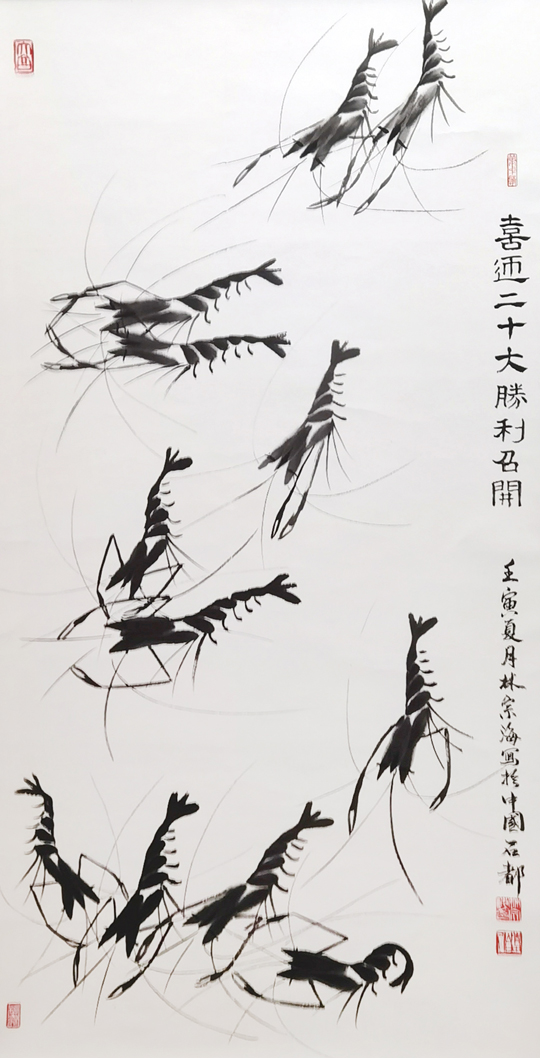 喜迊二十大勝利召開
壬寅夏月林宗海寫於中國石都